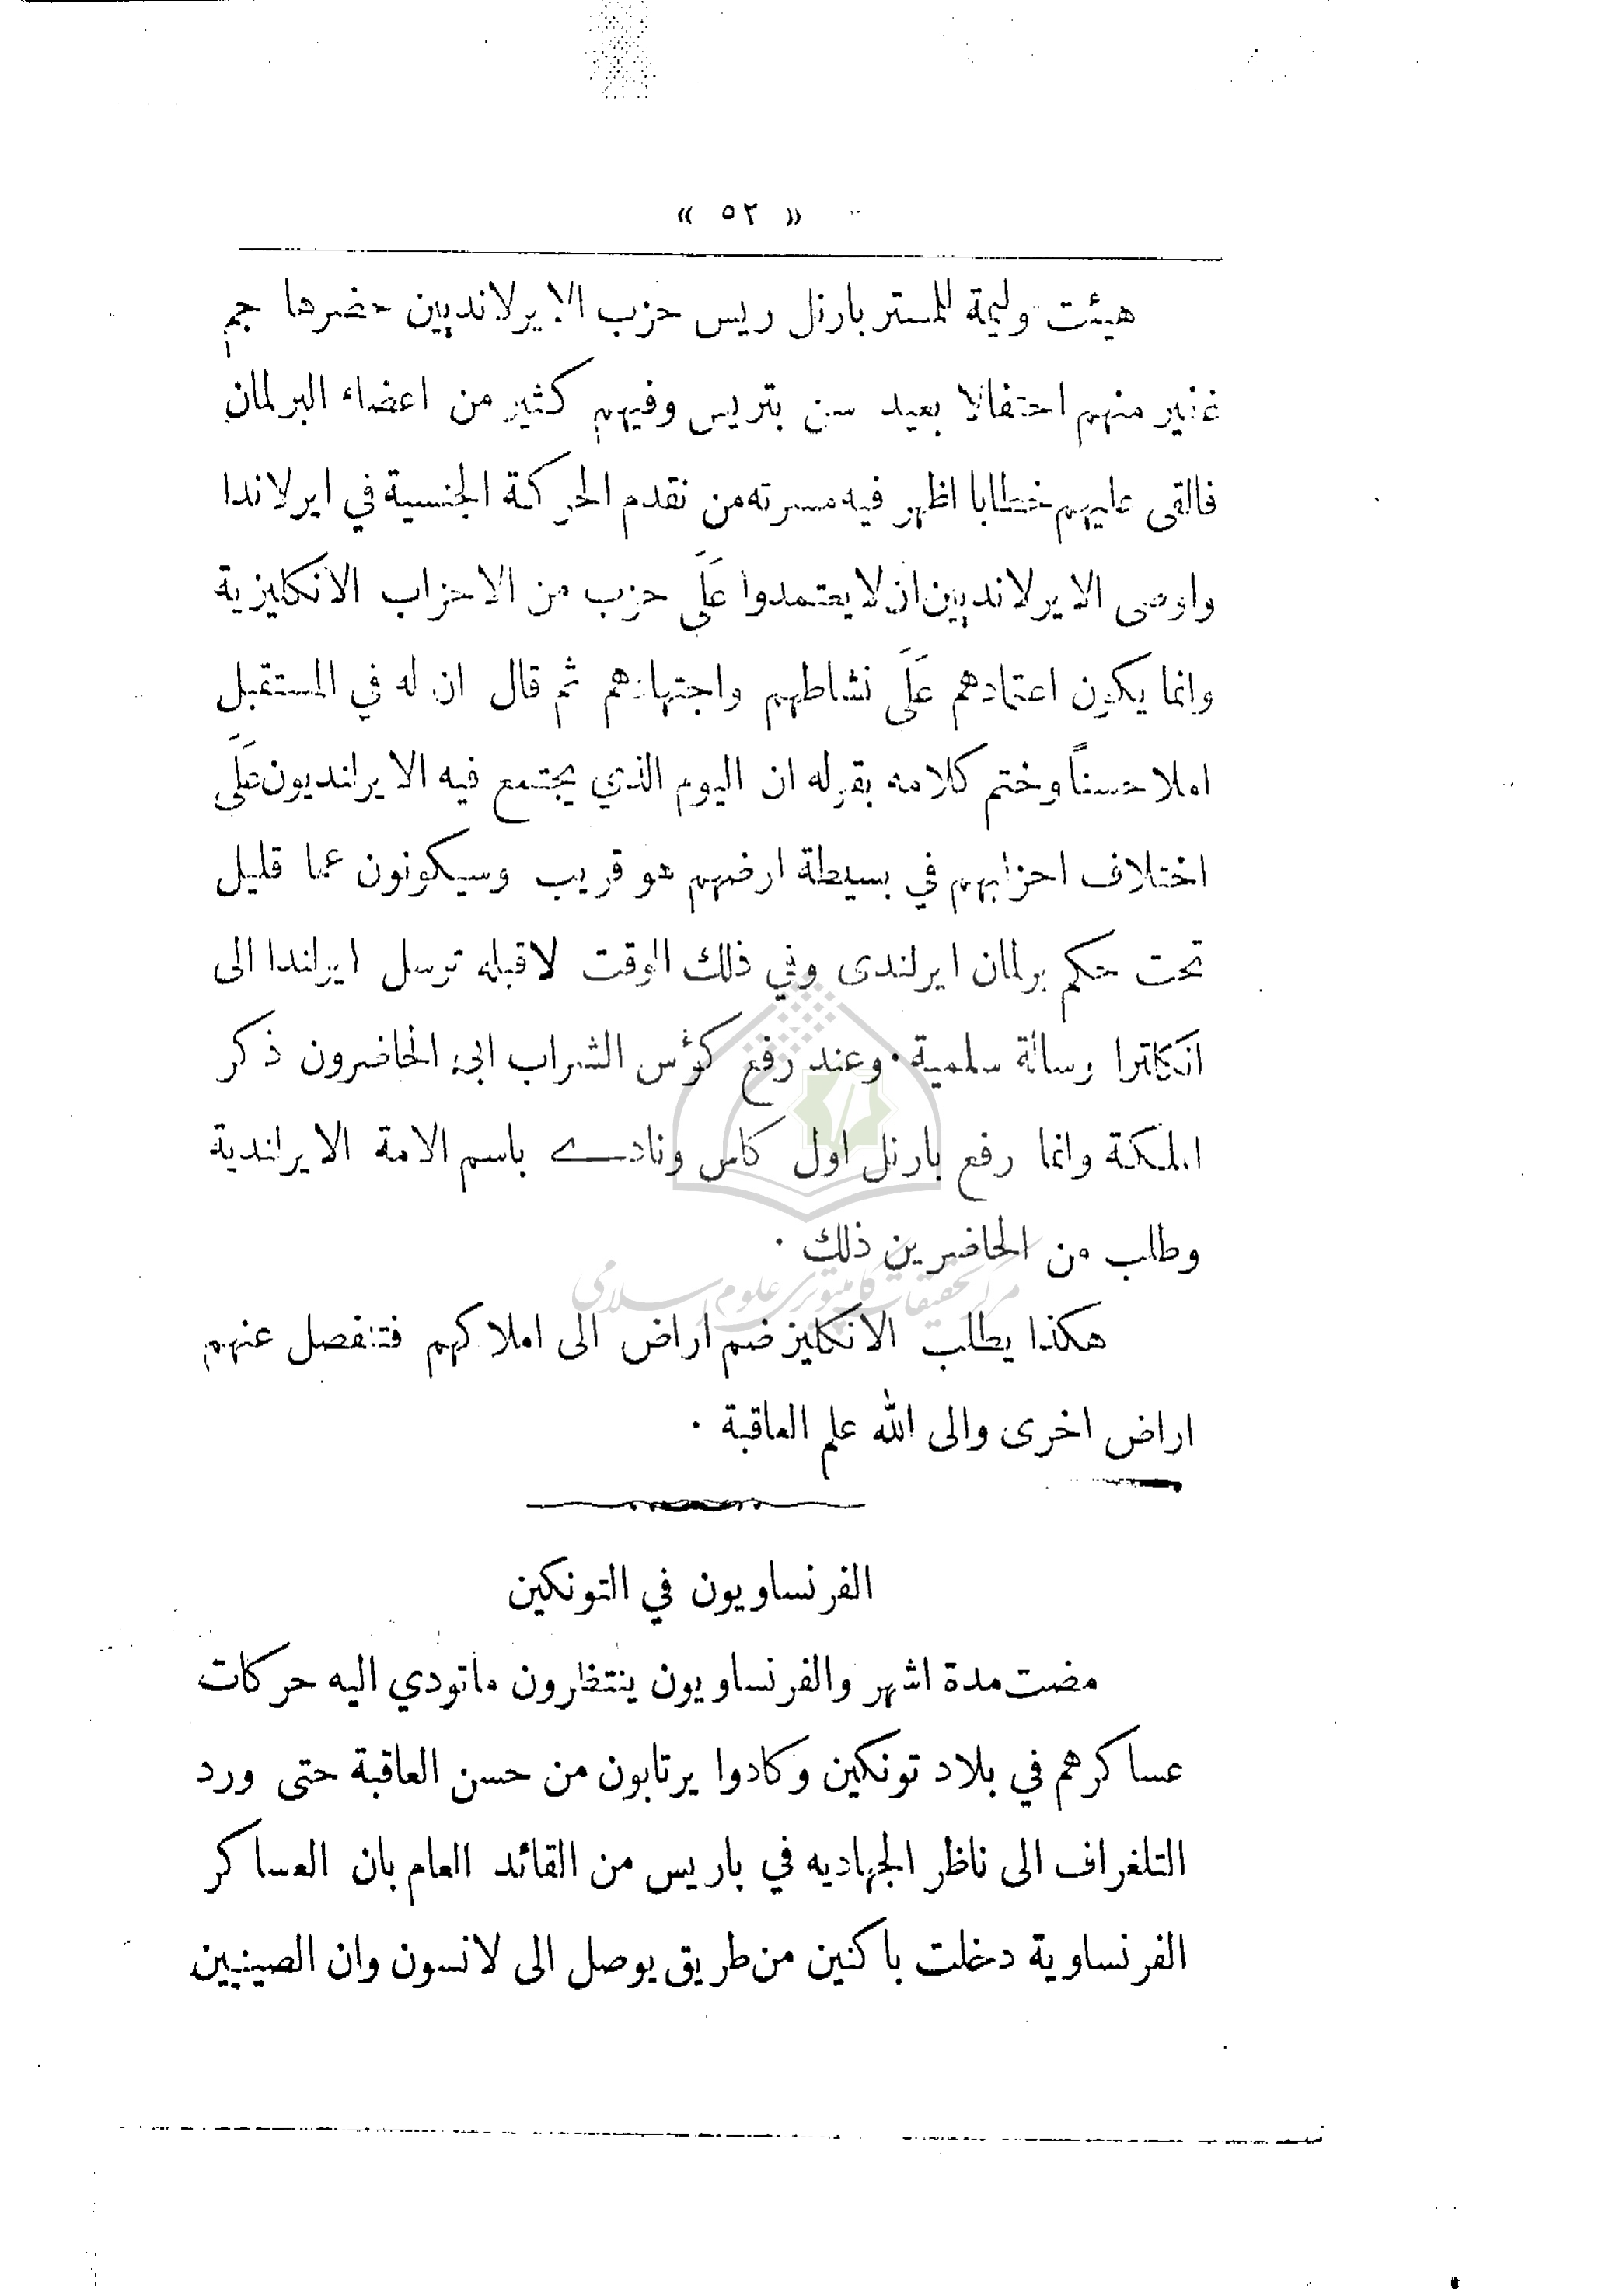 « ٥٢ »
هيئت وليمة للمستر بارنل ريس حزب الايرلانديين حضرها جم
غفير منهم احتفالا بعيد سن بتريس وفيهم كثير من اعضاء البرلمان
فالقى عليهم خطابا اظهر فيه مسرته من نقدم الحركة الجنسية في ايرلاندا
واوصى الايرلانديين ان لا يعتمدوا عَلَى حزب من الاحزاب الانكليزية
وانما يكون اعتمادهم عَلَى نشاطهم واجتهادهم ثم قال ان له في المستقبل
املا حسناً وختم كلامه بقوله ان اليوم الذي يجتمع فيه الايرلنديون عَلَى
اختلاف احزابهم في بسيطة ارضهم هو قريب وسيكونون عما قليل
تحت حكم برلمان ايرلندى وفي ذلك الوقت لاقبله ترسل ايرلندا الى
انكلترا رسالة سلمية · وعند رفع كؤس الشراب ابى الحاضرون ذكر
الملكة وانما رفع بارنل اول كاس ونادے باسم الامة الايرلندية
وطلب من الحاضرين ذلك ·
هكذا يطلب الانكليز ضم اراض الى املاكهم فتنفصل عنهم
اراض اخرى والى الله علم العاقبة ·
الفرنساويون في التونكين
مضت مدة اشهر والفرنساويون ينتظرون ماتودي اليه حركات
عساكرهم في بلاد تونكين وكادوا يرتابون من حسن العاقبة حتى ورد
التلغراف الى ناظر الجهاديه في باريس من القائد العام بان العساكر
الفرنساوية دخلت باكنين من طريق يوصل الى لانسون وان الصينيين
مركز تحقيقات كامپيوترى علوم اسلامى